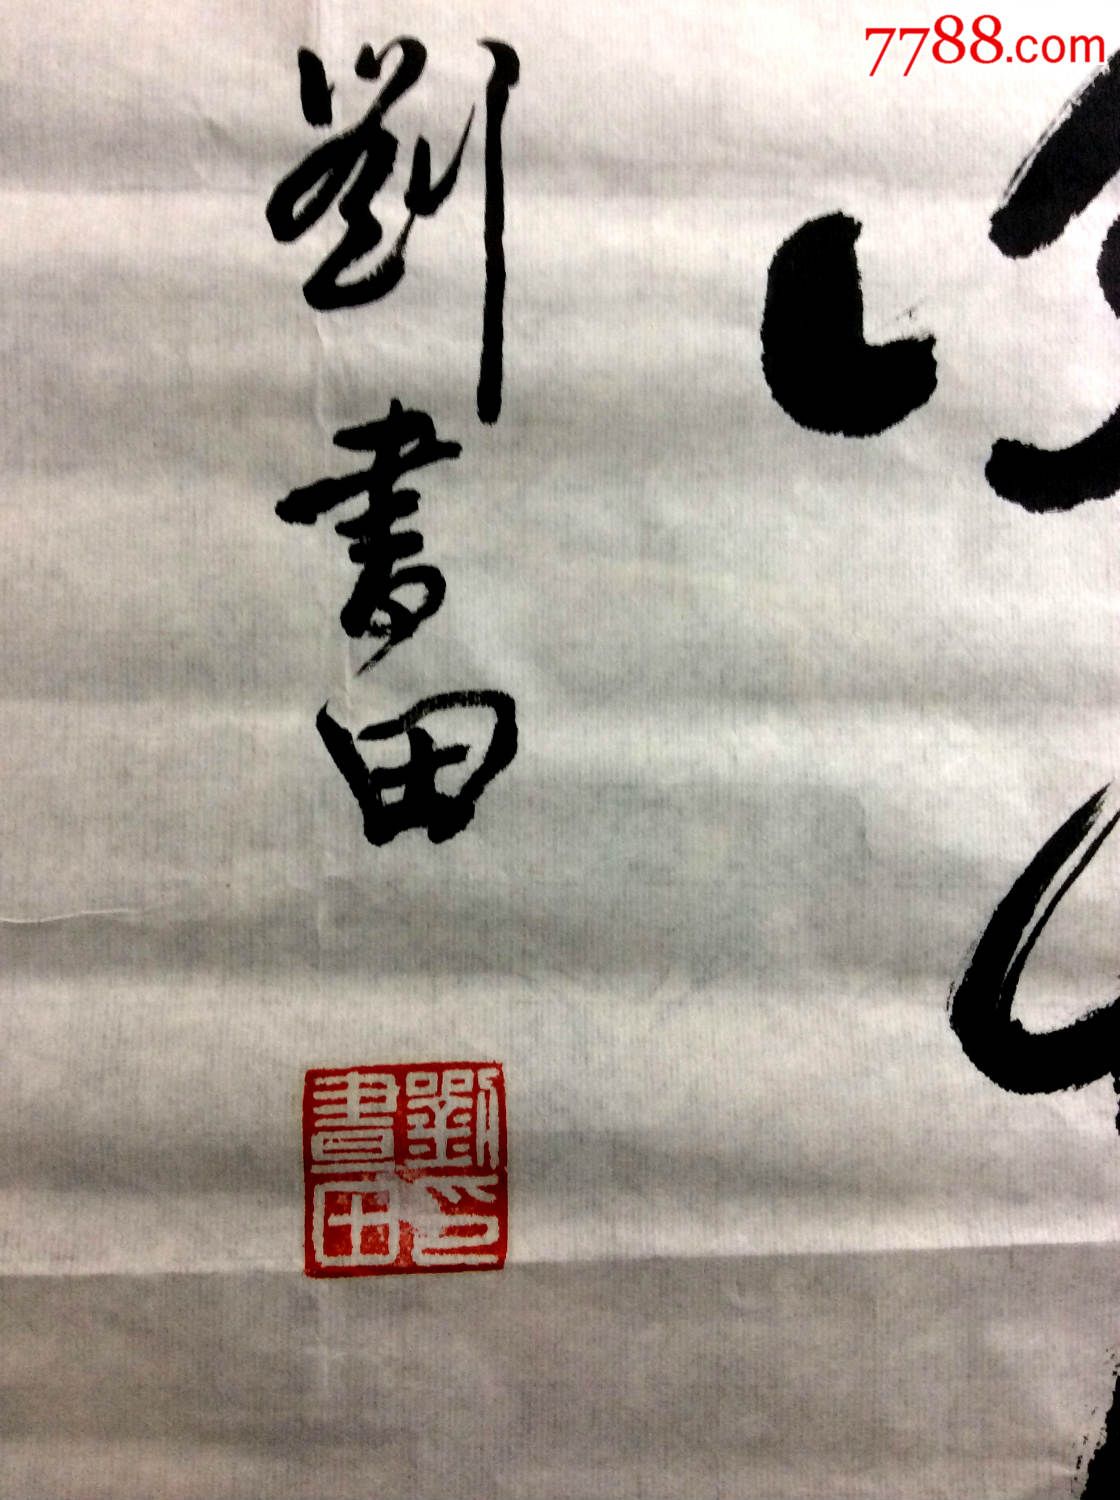 7788.com
劉書田
劉印
書田